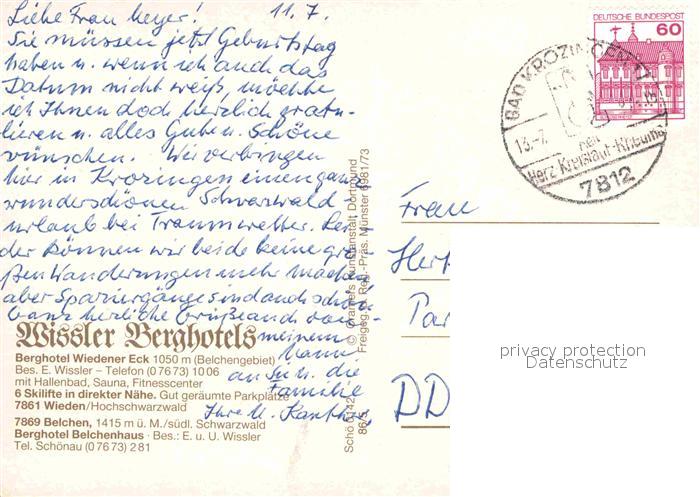 Liebe Frau Meyer! 11. 7.
Sie müssen jetzt Geburtstag
haben u. wenn ich auch das
Datum nicht weiß, möchte
ich Ihnen doch herzlich gratu-
lieren u. alles Gute u. Schöne
wünschen. Wir verbringen
hier in Krozingen einen ganz
wunderschönen Schwarzwald
urlaub bei Traumwetter. Lei
der können wir beide keine gro
ßen Wanderungen mehr machen
aber Spaziergänge sind auch schön
Ganz herzliche Grüße auch von
meinem
Mann
an Sie u. die
Familie
Ihre U.
Wissler Berghotels
Berghotel Wiedener Eck 1050 m (Belchengebiet)
Bes. E. Wissler – Telefon (0 76 73) 10 06
mit Hallenbad, Sauna, Fitnesscenter
6 Skilifte in direkter Nähe. Gut geräumte Parkplätze
7861 Wieden/Hochschwarzwald
7869 Belchen, 1415 m ü. M./südl. Schwarzwald
Berghotel Belchenhaus · Bes.: E. u. U. Wissler
Tel. Schönau (0 76 73) 2 81
© Cramers Kunstanstalt Dortmund
Freigeg. d. Reg.-Präs. Münster 6981/73
DEUTSCHE BUNDESPOST
60
BAD KROZINGEN
13.-7.
Herz Kreislauf-Rheuma
7812
Frau
Her
Par
DD
privacy protection
Datenschutz